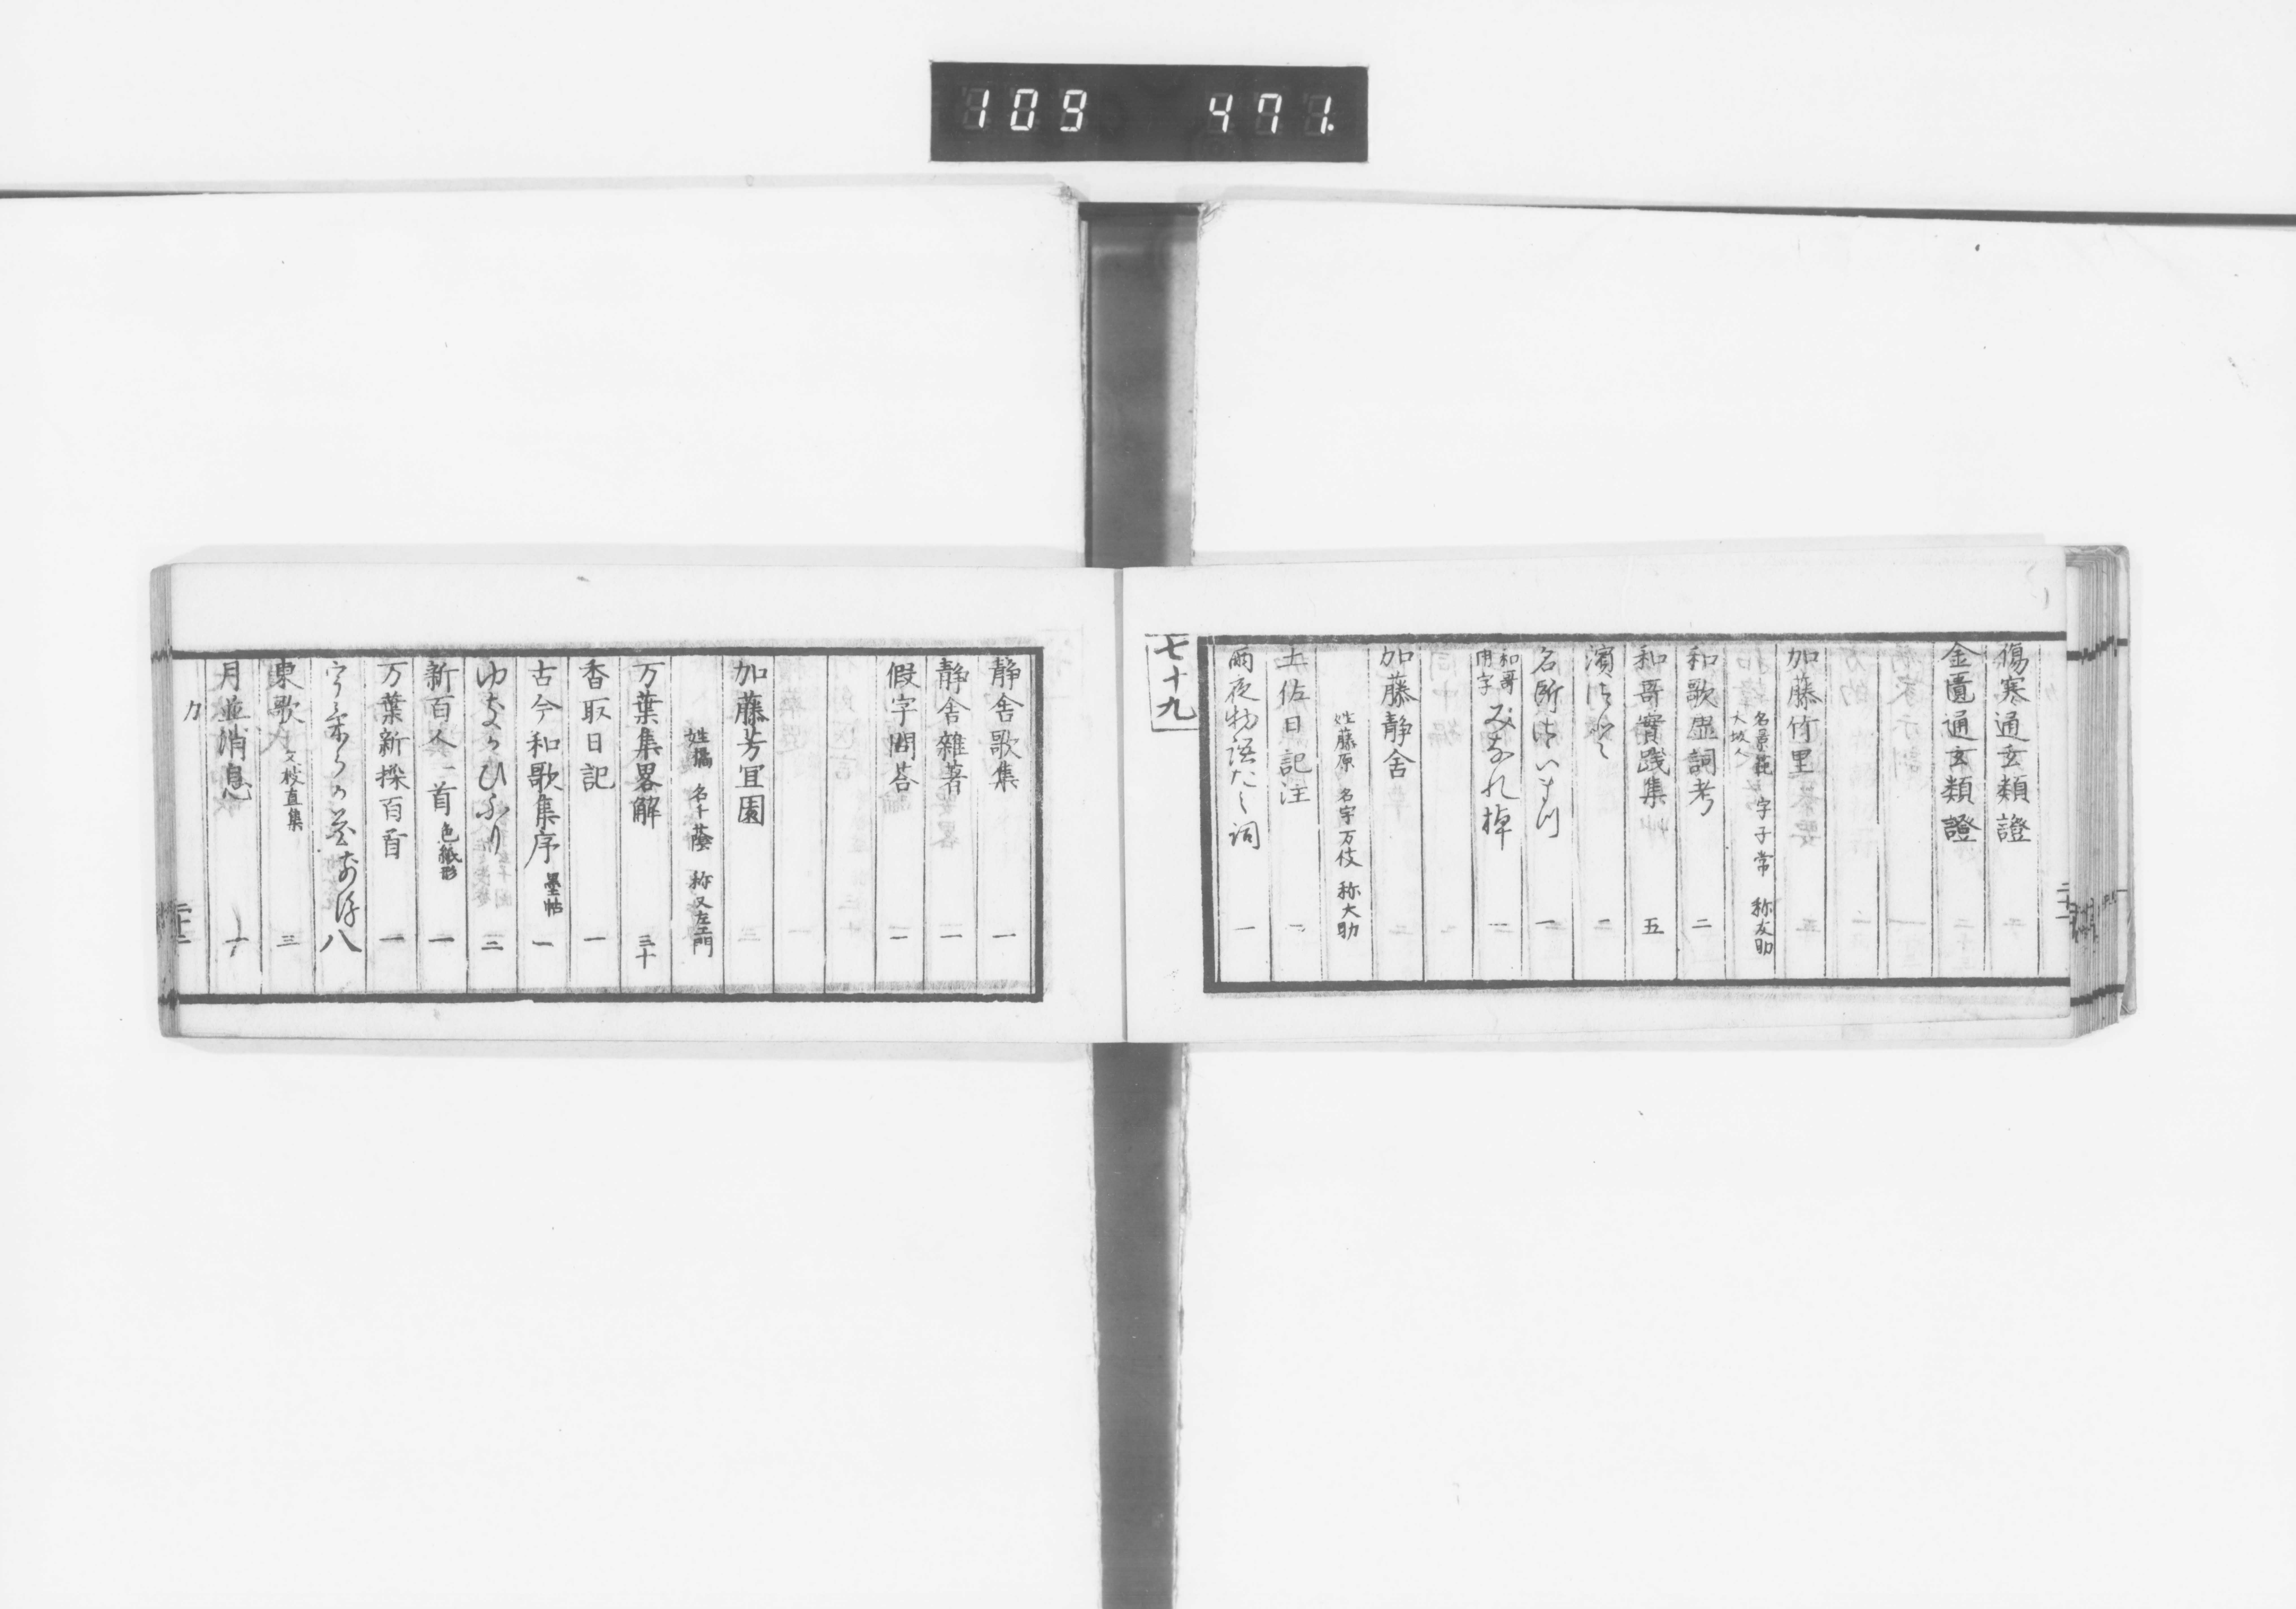 109 471.
傷寒通玄類證
金匱通玄類證
加藤竹里
名景範 字子常 称友助
大坂人
和歌虚詞考 二
和哥實践集 五
濱 二
名所 一
和哥
用字 みをれ棹
加藤静舍
姓藤原 名宇万伎 称大助
土佐日記注
雨夜物語たミ詞 一
七十九
静舍歌集 一
静舍雜著 一
假字問荅 一
加藤芳宜園
姓橘 名千蔭 称又左エ門
万葉集畧解 三十
香取日記 一
古今和歌集序 墨帖 一
ゆきかひふり 二
新百人一首 色紙形 一
万葉新採百首 一
うけらか花 前後 八
東歌 枝直集 三
月並消息 一
カ